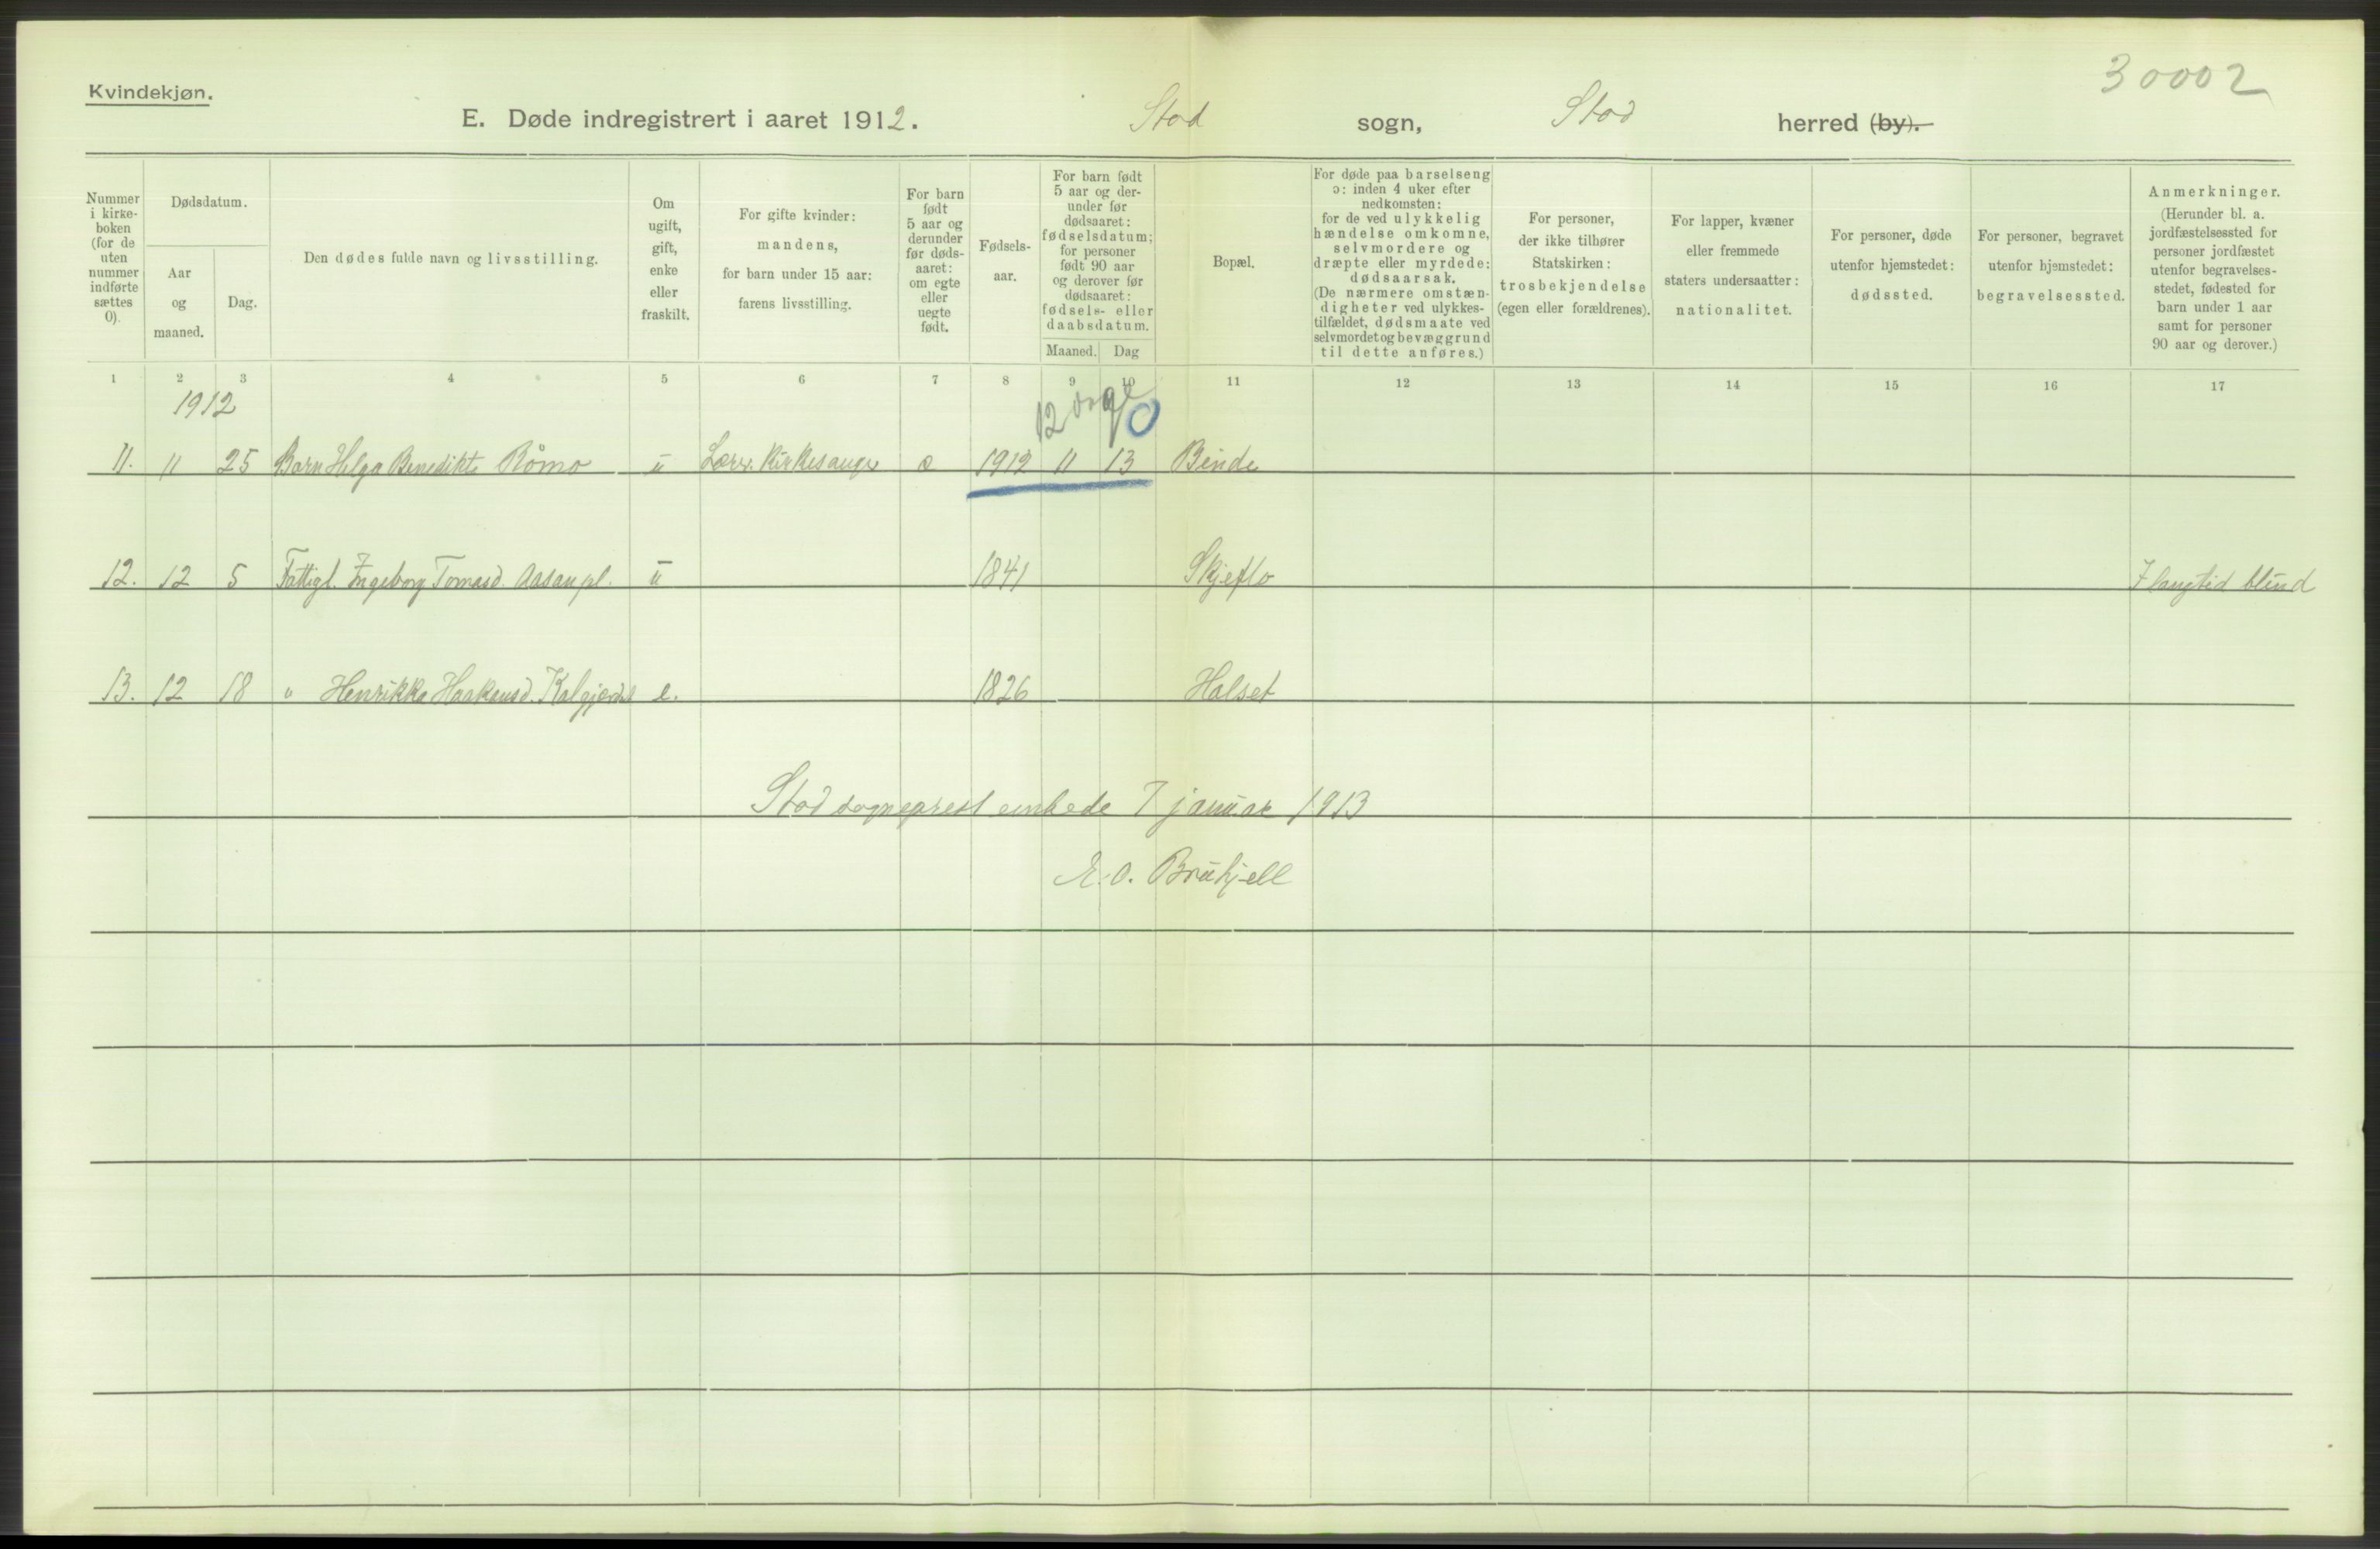 Kvindekjøn.
30002
E. Døde indregistrert i aaret 1912. Stod sogn, Stod herred (by).
Nummer i kirke- boken (for de uten nummer indførte sættes 0).
Dødsdatum.
Aar og maaned.
Dag.
Den dødes fulde navn og livsstilling.
Om ugift, gift, enke eller fraskilt.
For gifte kvinder: mandens, for barn under 15 aar: farens livsstilling.
For barn født 5 aar og derunder før døds- aaret: om egte eller uegte født.
Fødsels- aar.
For barn født 5 aar og der- under før dødsaaret: fødselsdatum; for personer født 90 aar og derover før dødsaaret: fødsels- eller daabsdatum.
Maaned. Dag
Bopæl.
For døde paa barselseng ɔ: inden 4 uker efter nedkomsten: for de ved ulykkelig hændelse omkomne, selvmordere og dræpte eller myrdede: dødsaarsak. (De nærmere omstæn- digheter ved ulykkes- tilfældet, dødsmaate ved selvmordet og bevæggrund til dette anføres.)
For personer, der ikke tilhører Statskirken: trosbekjendelse (egen eller forældrenes).
For lapper, kvæner eller fremmede staters undersaatter: nationalitet.
For personer, døde utenfor hjemstedet: dødssted.
For personer, begravet utenfor hjemstedet: begravelsessted.
Anmerkninger. (Herunder bl. a. jordfæstelsessted for personer jordfæstet utenfor begravelses- stedet, fødested for barn under 1 aar samt for personer 90 aar og derover.)
1 2 3 4 5 6 7 8 9 10 11 12 13 14 15 16 17
1912
12 0
11. 11 25 Barn Helga Benedikte Römo u Lærer. Kirkesanger 1912 11 13 Binde
12. 12 5 Fattigl. Ingeborg Tomasd. Aasan pl. u 1841 Skjeflo I langtid blind
13. 12 18 " Henrikka Haakansd. e. 1826 Halset
Stod sogneprest embede 7 januar 1913
E. O. Bruhjell